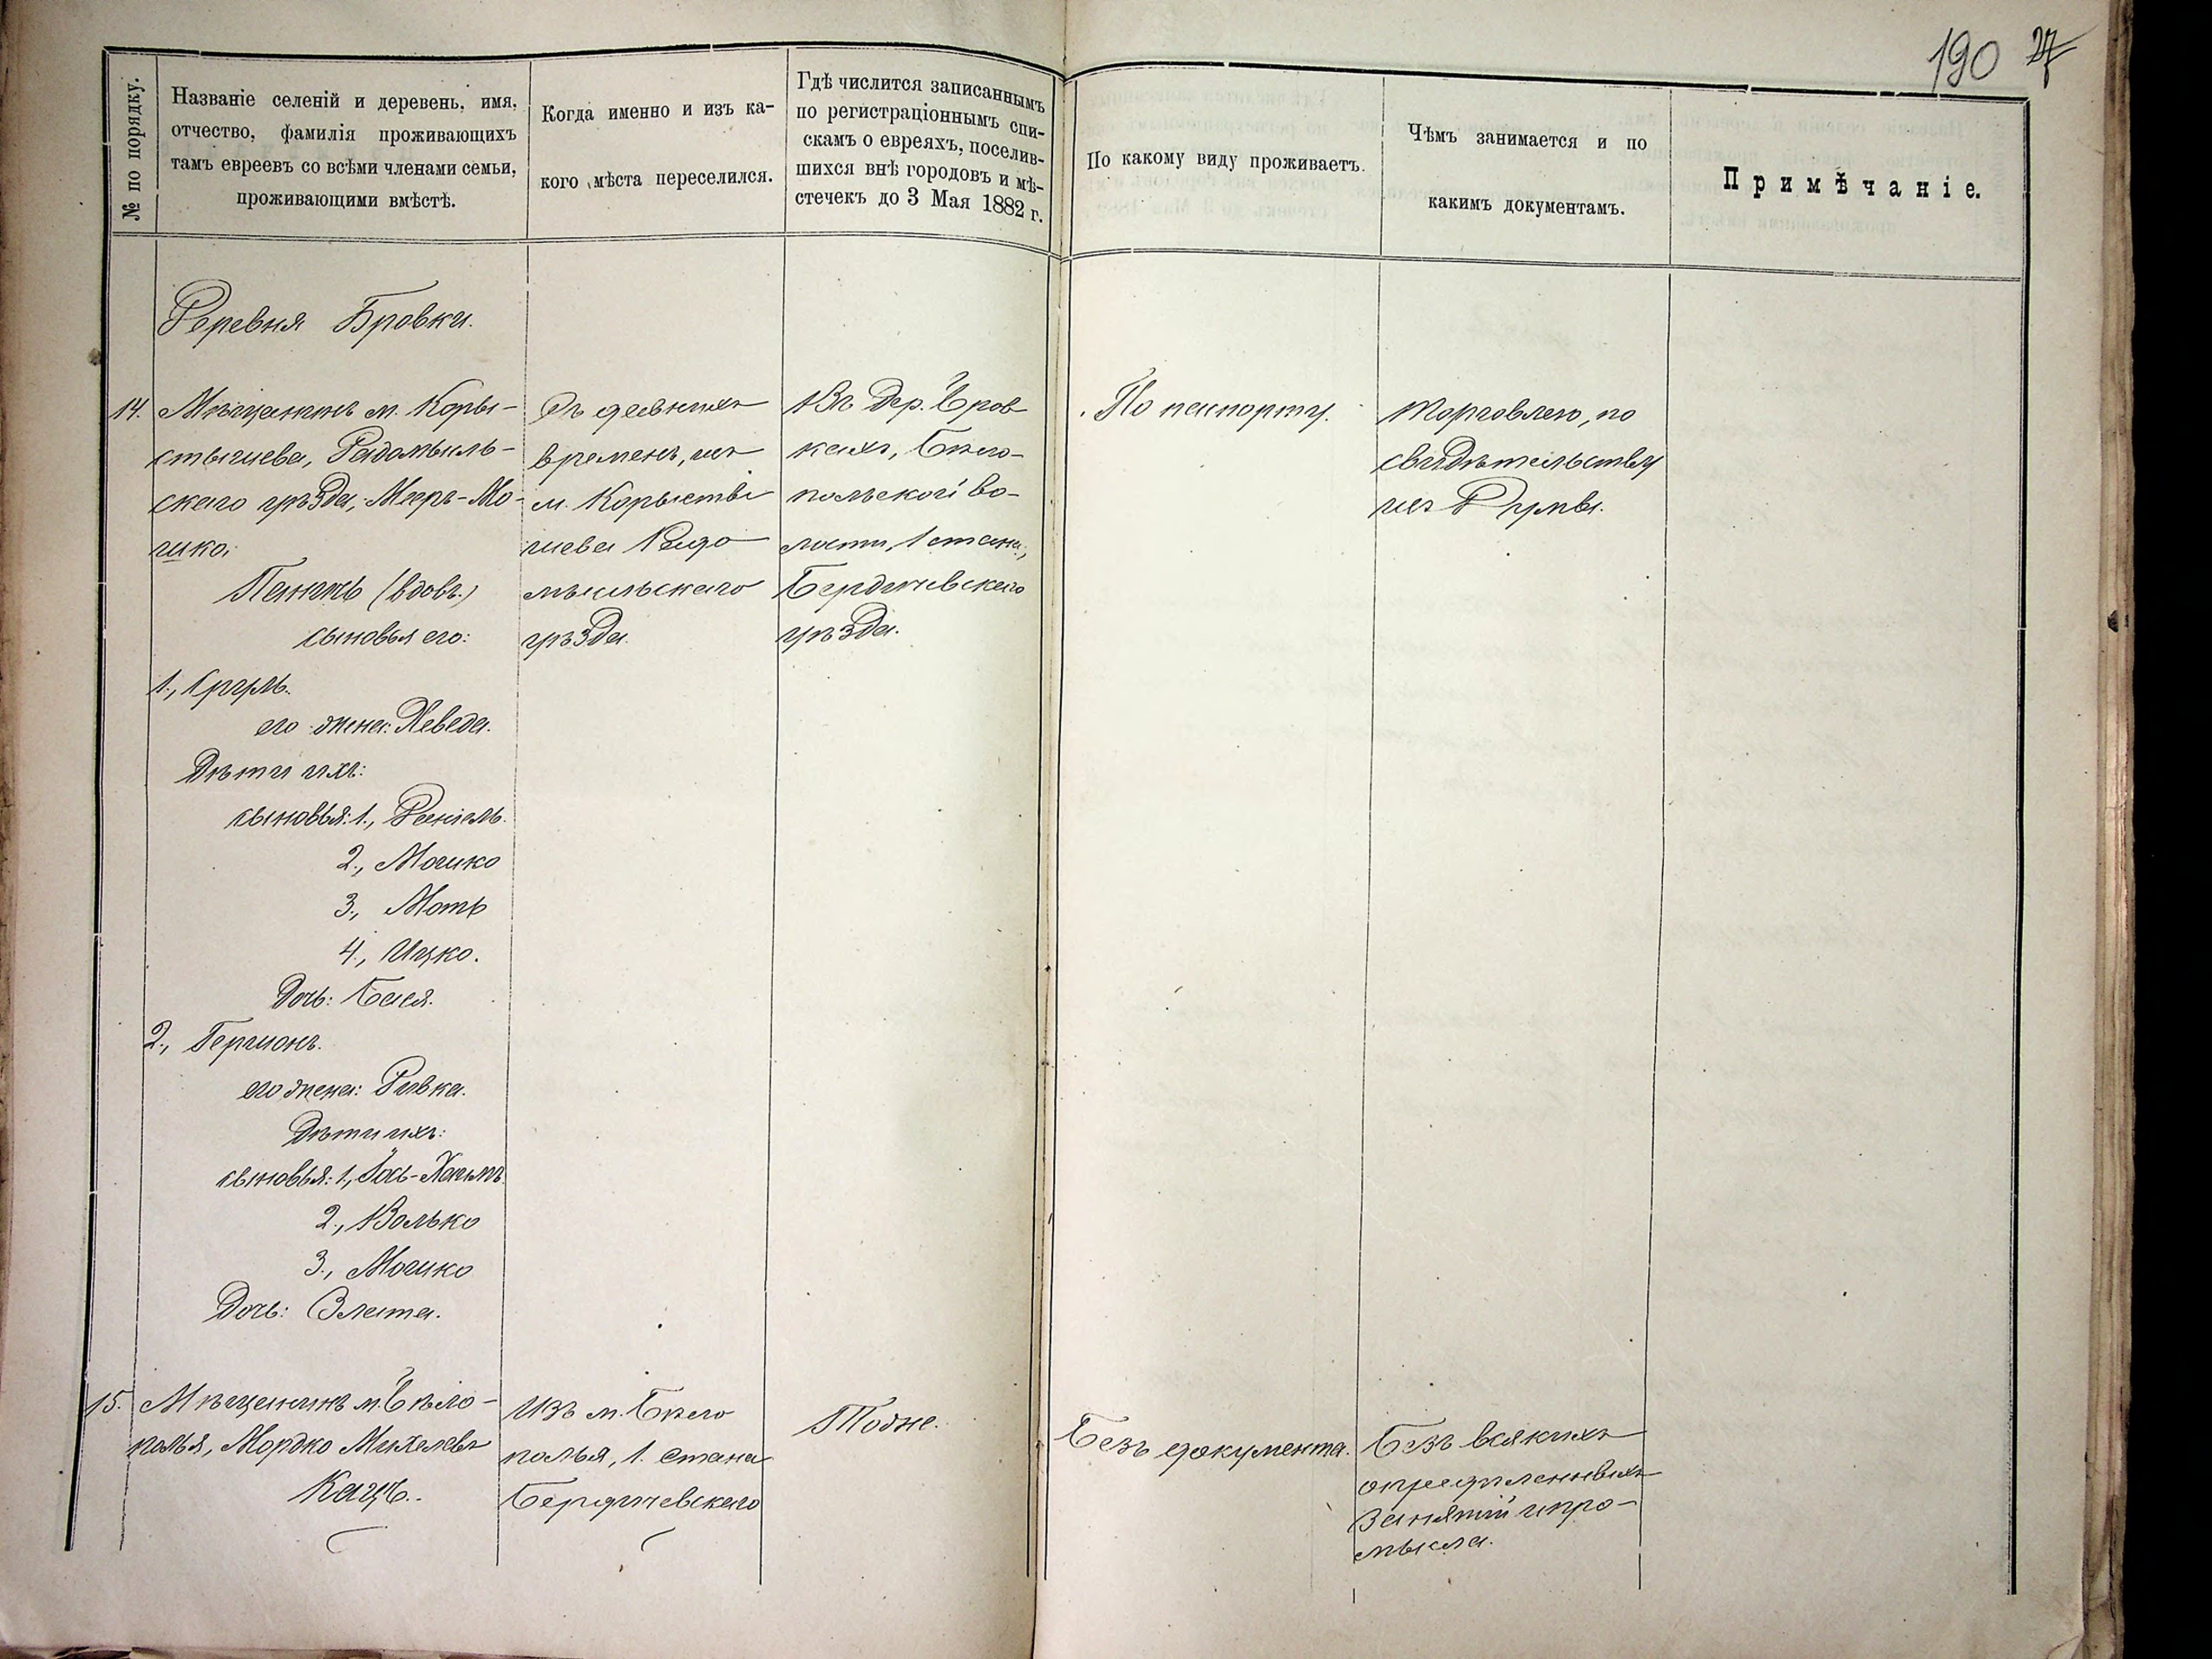 190 27
№ по порядку.
Названіе селеній и деревень, имя,
отчество, фамилія проживающихъ
тамъ евреевъ со всѣми членами семьи,
проживающими вмѣстѣ.
Когда именно и изъ ка-
кого мѣста переселился.
Гдѣ числится записаннымъ
по регистраціоннымъ спи-
скамъ о евреяхъ, поселив-
шихся внѣ городовъ и мѣ-
стечекъ до 3 Мая 1882 г.
По какому виду проживаетъ.
Чѣмъ занимается и по
какимъ документамъ.
Примѣчаніе.
Деревня Бровки.
14.
Мѣщанинъ м. Коры-
стышева, Радомысль-
скаго уѣзда, Мееръ-Мо-
шко,
(вдовъ)
сыновья его:
1., Сруль.
его жена: Хеведа.
Дѣти ихъ:
сыновья: 1., Даніель.
2., Мошко
3., Моть
4., Ицко.
Дочь: Бася.
2., Гершонъ.
его жена: Ривка.
Дѣти ихъ:
сыновья: 1., Іось-Хаимъ
2., Волько
3., Мошко
Дочь: Злата.
Съ давнихъ
временъ, изъ
м. Корысты
шева Радо
мысльскаго
уѣзда.
Въ дер. Бров
кахъ, Бѣло-
польской во-
лости, 1 стана,
Бердичевскаго
уѣзда.
По паспорту.
Торговлею, по
свидѣтельству
изъ Думы.
15.
Мѣщанинъ м. Бѣло-
полья, Мордко Михелевъ
Кацъ.
Изъ м. Бѣло
полья, 1. стана
Бердичевскаго
Тоже.
Безъ документа.
Безъ всякихъ
опредѣленныхъ
занятій и про-
мысла.